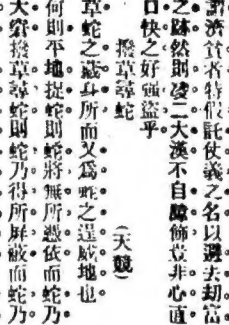 謂濟貧者特假託仗義之名以遮去刼富
之跡然則該二大漢不自諱飾豈非心直
口快之好強盜乎
撥草尋蛇
(天競)
草蛇之藏身所而又爲蛇之逞威地也
何則平地捉蛇則蛇將無所憑依而蛇乃
大窘撥草尋蛇則蛇乃得所屏蔽而蛇乃